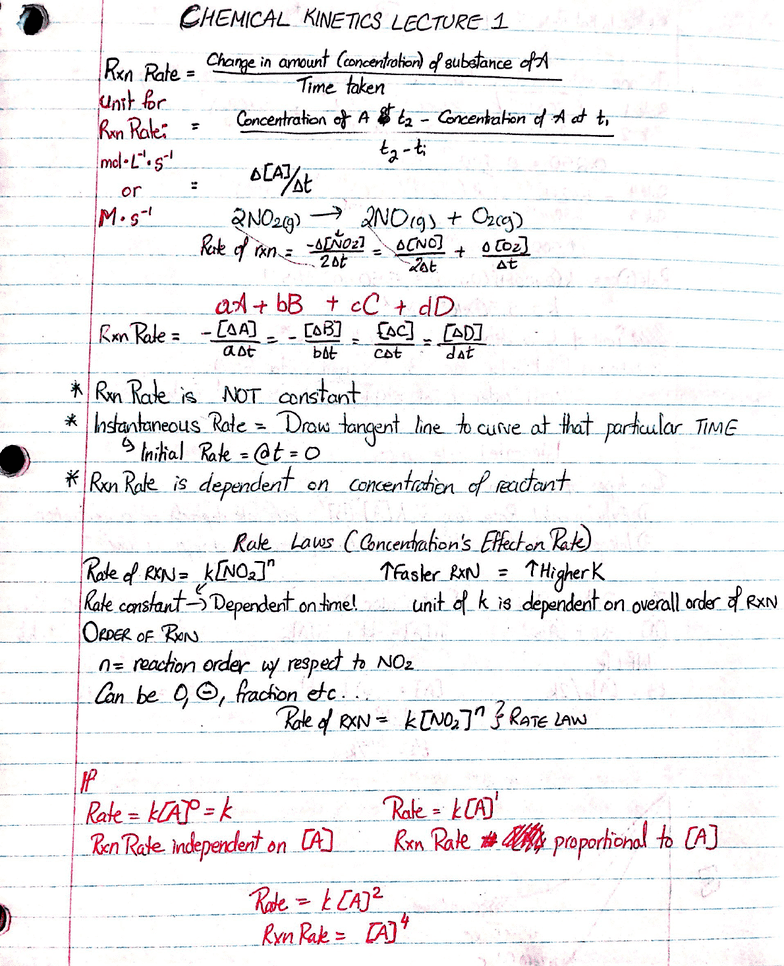 CHEMICAL KINETICS LECTURE 1
Rxn Rate = Change in amount (concentration) of substance of A / Time taken
Unit for Rxn Rate:
= Concentration of A t₂ - Concentration of A at t₁ / t₂ - t₁
mol·L⁻¹·s⁻¹
or
= Δ[A]/Δt
M·s⁻¹
2NO₂(g) → 2NO(g) + O₂(g)
Rate of rxn = -Δ[NO₂]/2Δt = Δ[NO]/2Δt + Δ[O₂]/Δt
aA + bB + cC + dD
Rxn Rate = -[ΔA]/aΔt = -[ΔB]/bΔt = [ΔC]/cΔt = [ΔD]/dΔt
* Rxn Rate is NOT constant
* Instantaneous Rate = Draw tangent line to curve at that particular TIME
↳ Initial Rate = @t = 0
* Rxn Rate is dependent on concentration of reactant
Rate Laws (Concentration's Effect on Rate)
Rate of RXN = k[NO₂]ⁿ ↑Faster RXN = ↑Higher K
Rate constant → Dependent on time! unit of k is dependent on overall order of RXN
ORDER OF RXN
n = reaction order w/ respect to NO₂
Can be 0, ⊖, fraction etc...
Rate of RXN = k[NO₂]ⁿ } RATE LAW
If
Rate = k[A]⁰ = k Rate = k[A]¹
Rxn Rate independent on [A] Rxn Rate proportional to [A]
Rate = k[A]²
Rxn Rate = [A]⁴